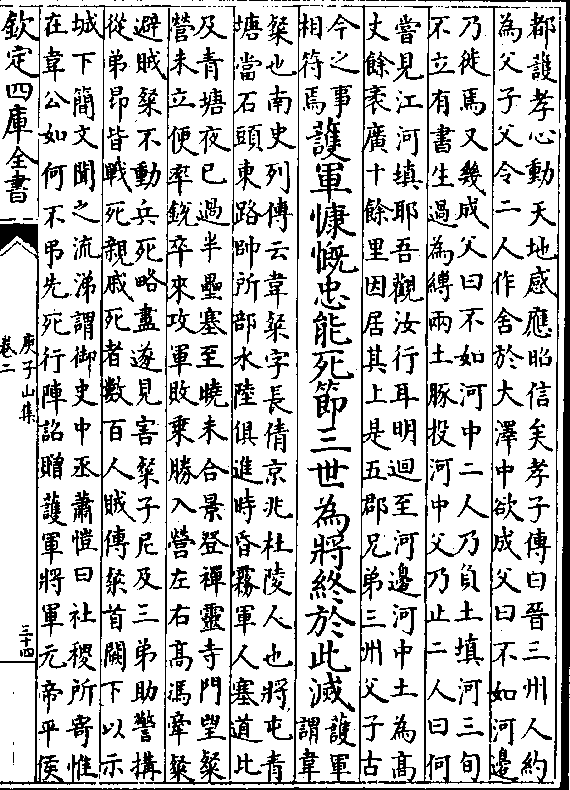 都護孝心動天地感應昭信矣孝子傳曰晉三州人約
為父子父令二人作舍於大澤中欲成父曰不如河邊
乃徙焉又幾成父曰不如河中二人乃負土填河三旬
不立有書生過為縛兩土豚投河中父乃止二人曰何
嘗見江河填耶吾觀汝行耳明迴至河邊河中土為高
丈餘袤廣十餘里因居其上是五郡兄弟三州父子古
今之事
相符焉
護軍慷慨忠能死節三世為將終於此滅
護軍
謂韋
粲也南史列傳云韋粲字長倩京兆杜陵人也將屯青
塘當石頭東路帥所部水陸俱進時昏霧軍人塞道比
及青塘夜已過半壘塞至曉未合景登禪靈寺門望粲
營未立便率銳卒來攻軍敗乗勝入營左右高馮牽粲
避賊粲不動兵死略盡遂見害粲子尼及三弟助警搆
從弟昂皆戰死親戚死者數百人賊傳粲首闕下以示
城下簡文聞之流涕謂御史中丞蕭愷曰社稷所寄惟
在韋公如何不弔先死行陣詔贈護軍將軍元帝平侯
欽定四庫全書
庚子山集
卷二
三十四